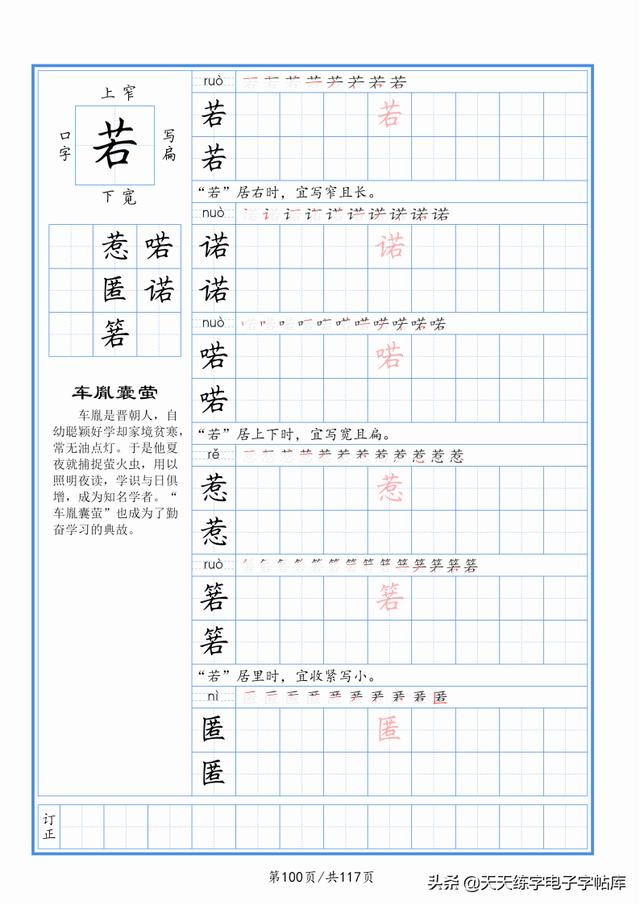 上窄
口字
若
写扁
下宽
惹 喏
匿 诺
箬
车胤囊萤
车胤是晋朝人，自
幼聪颖好学却家境贫寒，
常无油点灯。于是他夏
夜就捕捉萤火虫，用以
照明夜读，学识与日俱
增，成为知名学者。“
车胤囊萤”也成为了勤
奋学习的典故。
ruò
若 若
若
“若”居右时，宜写窄且长。
nuò
诺 诺
诺
nuò
喏 喏
喏
“若”居上下时，宜写宽且扁。
rě
惹 惹
惹
ruò
箬 箬
箬
“若”居里时，宜收紧写小。
nì
匿 匿
匿
订正
第100页/共117页
头条 @天天练字电子字帖库